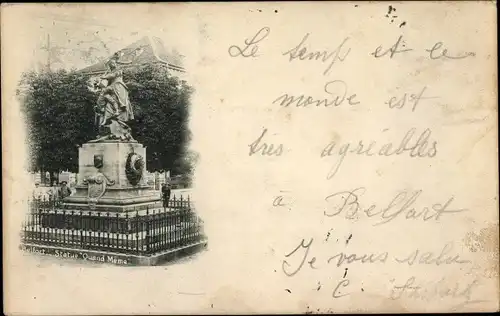 Le temps et ce
monde est
très agréables
à Belfort
Je vous salu
C
Belfort - Statue "Quand Même"